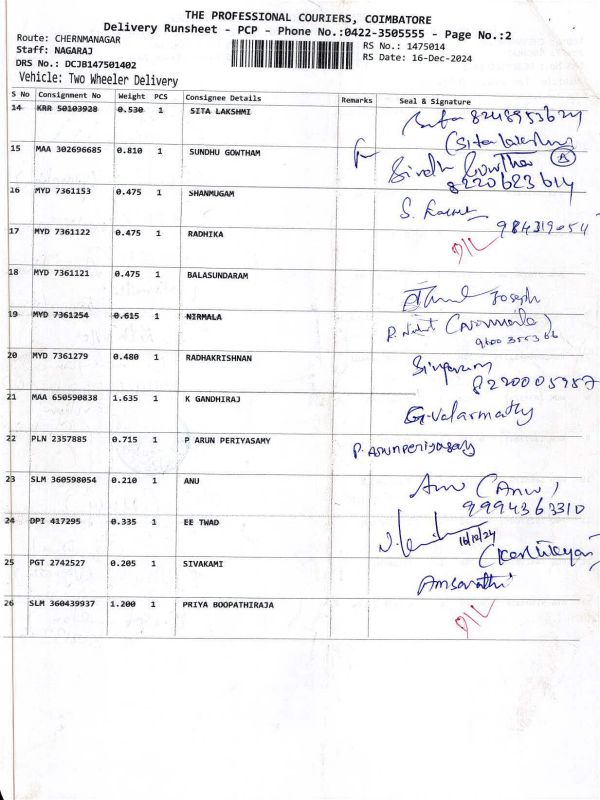 THE PROFESSIONAL COURIERS, COIMBATORE
Delivery Runsheet - PCP - Phone No.:0422-3505555 - Page No.:2
Route: CHERNMANAGAR
Staff: NAGARAJ
DRS No.: DCJB147501402
Vehicle: Two Wheeler Delivery
RS No.: 1475014
RS Date: 16-Dec-2024
S No Consignment No Weight PCS Consignee Details Remarks Seal & Signature
14 KRR 50103928 0.530 1 SITA LAKSHMI 8248953624
(Sitalakshmi)
15 MAA 302696685 0.810 1 SUNDHU GOWTHAM
8220623614
16 MYD 7361153 0.475 1 SHANMUGAM S.
984319054
17 MYD 7361122 0.475 1 RADHIKA D/L
18 MYD 7361121 0.475 1 BALASUNDARAM Joseph
19 MYD 7361254 0.615 1 NIRMALA (Nirmala)
20 MYD 7361279 0.480 1 RADHAKRISHNAN
8220005957
21 MAA 650590838 1.635 1 K GANDHIRAJ G.Valarmathy
22 PLN 2357885 0.715 1 P ARUN PERIYASAMY P. Arunperiyasamy
23 SLM 360598054 0.210 1 ANU Anu (Anu)
9994363310
24 DPI 417295 0.335 1 EE TWAD 16/12/24
(Karthikeyan)
25 PGT 2742527 0.205 1 SIVAKAMI
26 SLM 360439937 1.200 1 PRIYA BOOPATHIRAJA D/L